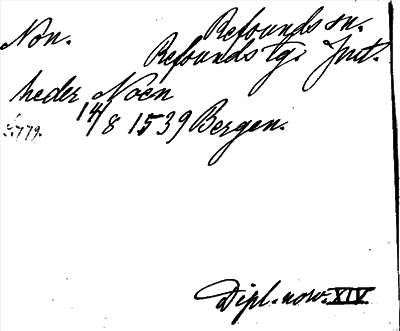 Non. Refounds sn.
Refounds tg. Jnt.
heder Noen
14/8 1539 Bergen.
s. 779.
Dipl. norv. XIV.